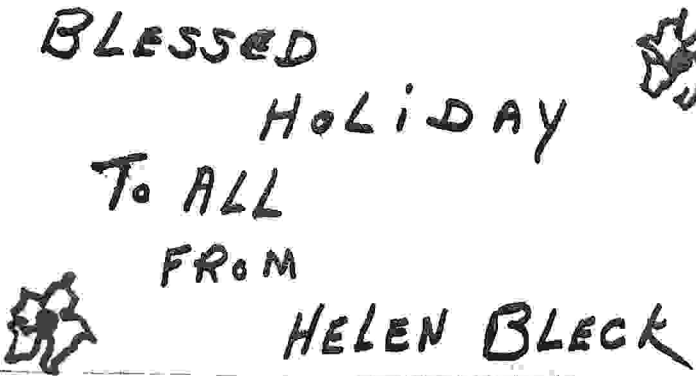 BLESSED
HOLiDAY
To ALL
FRoM
HELEN BLECK